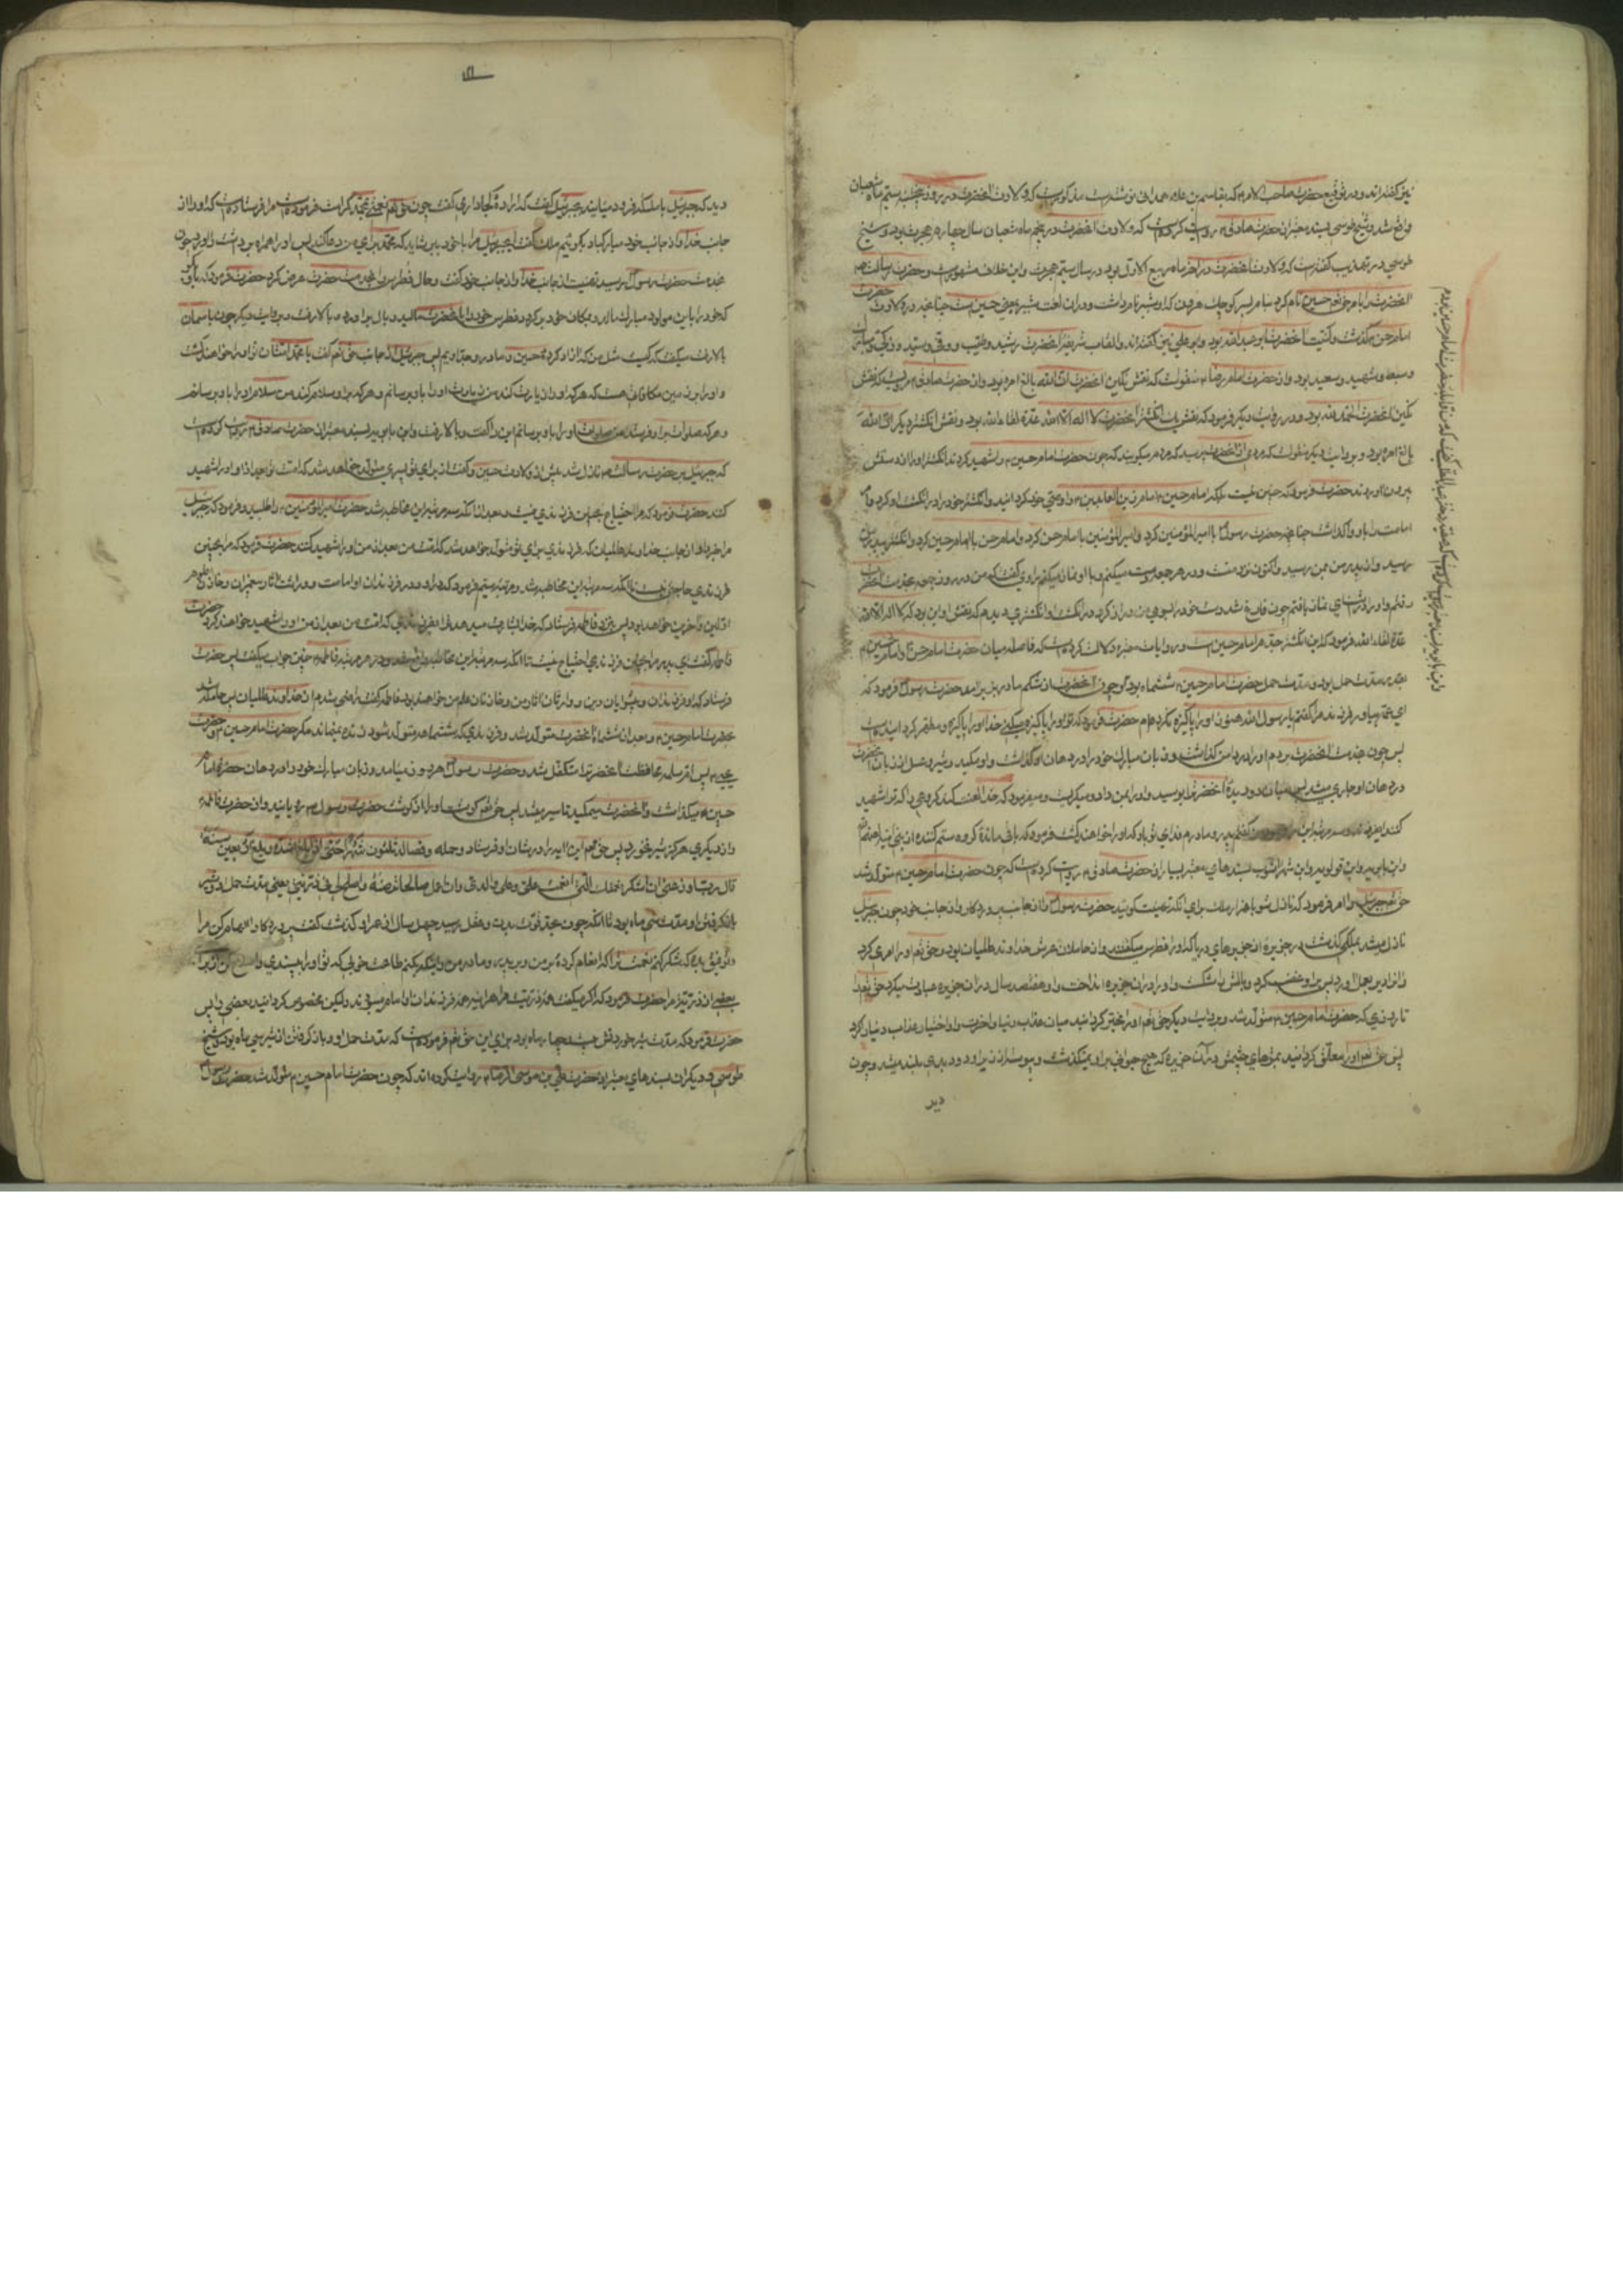 نیز گفته‌اند و در توقیع حضرت صاحب الامر که بقاسم بن علاء همدانی نوشته است مذکورست که ولادت آنحضرت در روز پنجشنبه سیم ماه شعبان
واقع شد و شیخ طوسی بسند معتبر از حضرت صادق روایت کرده است که ولادت آنحضرت در پنجم ماه شعبان سال چهارم هجرت بود و شیخ
طوسی در تهذیب گفته است که ولادت آنحضرت در آخر ماه ربیع الاول بود در سال سیم هجرت و این خلاف مشهورست و حضرت رسالت
آنحضرت را بامر حق تعالی حسین نام کرد بنام پسر کوچک هرون که او شبیر نام داشت و در آن لغت شبیر بمعنی حسین است چنانچه در ولادت حضرت
امام حسن گذشت و کنیت آنحضرت ابو عبدالله بود و ابو علی نیز گفته‌اند و القاب شریفه آنحضرت رشید و طیب و وفی و سید و زکی و مبارک
و سبط و شهید و سعید بود و از حضرت امام رضا منقولست که نقش نگین آنحضرت ان الله بالغ امره بود و از حضرت صادق مرویست که نقش
نگین آنحضرت الحمد لله بود و در روایت دیگر فرمود که نقش یک انگشتر آنحضرت لا اله الا الله عدة للقاء الله بود و نقش انگشتر دیگر ان الله
بالغ امره بود و بروایت دیگر منقولست که مردی از آنحضرت پرسید که مردم میگویند که چون حضرت امام حسین را شهید کردند انگشتر او را از دستش
بیرون آوردند حضرت فرمود که چنین نیست بلکه امام حسین امام زین العابدین را وصی خود گردانید و انگشتر خود را در انگشت او کرد و امر
امامت را باو واگذاشت چنانچه حضرت رسول با امیرالمؤمنین کرد و امیرالمؤمنین با امام حسن کرد و امام حسن با امام حسین کرد و انگشتر پدرم
رسید و از پدر من بمن رسید و اکنون نزد منست و در هر جمعه در دست میکنم و با او نماز میکنم راوی گفت که من در روز جمعه بخدمت آنحضرت
رفتم و او را در اثنای نماز یافتم چون فارغ شد دست خود را بسوی من دراز کرد در انگشت او انگشتری دیدم که نقش او این بود که لا اله الا الله
عدة للقاء الله فرمود که این انگشتر جدم امام حسین است و روایات معتبره دلالت کرده است که فاصله میان حضرت امام حسن و امام حسین
بقدر مدت حمل بود و مدت حمل حضرت امام حسین ششماه بود چون آنحضرت از شکم مادر بزیر آمد حضرت رسول فرمود که
ای عمه بیاور فرزند مرا گفتم یا رسول الله هنوز او را پاکیزه نکرده‌ام حضرت فرمود که تو او را پاکیزه میکنی خدا او را پاکیزه و مطهر گردانیده است
پس چون بخدمت آنحضرت بردم او را در دامن گذاشت و زبان مبارک خود را در دهان او گذاشت و او میمکید و شیر و عسل از زبان آنحضرت
در دهان او جاری میشد پس میان دو دیده آنحضرت را بوسید و او را بمن داد و میگریست و میفرمود که خدا لعنت کند گروهی را که ترا شهید
کنند گفتم پدر و مادرم فدای تو باد که او را خواهند کشت فرمود که باقی مانده گروه ستم کننده از بنی امیه
و ابن بابویه و ابن قولویه و ابن شهرآشوب بسندهای معتبر بسیار از حضرت صادق روایت کرده است که چون حضرت امام حسین متولد شد
حق تعالی جبرئیل را امر فرمود که نازل شو با هزار ملک برای آنکه تهنیت گویند حضرت رسول را از جانب پروردگار و از جانب خود چون جبرئیل
نازل میشد بملکی گذشت در جزیره از جزیرهای دریا که او را فطرس میگفتند و از حاملان عرش خداوند عالمیان بود و حق تعالی او را امری کرد
و او را دیر بعمل آورد پس بر او غضب کرد و بالش را شکست و او را در آن جزیره انداخت و او هفتصد سال در آن جزیره عبادت میکرد حق تعالی را
تا روزی که حضرت امام حسین متولد شد و بروایت دیگر حق تعالی او را مخیر گردانید میان عذاب دنیا و آخرت و او اختیار عذاب دنیا کرد
پس حق تعالی او را معلق گردانید بموهای چشمش در آن جزیره که هیچ حیوانی بر او نمیگذشت و پیوسته از زیر او دود بدبوی بلند میشد و چون
دید
دید که جبرئیل با ملائکه فرود میآیند بجبرئیل گفت که اراده کجا داری گفت چون حق تعالی نعمتی بمحمد کرامت فرموده است مرا فرستاده است که او را از
جانب خدا و از جانب خود مبارکباد بگویم ملک گفت ای جبرئیل مرا با خود ببر شاید که محمد برای من دعا کند پس او را همراه برداشت و آورد چون
بخدمت حضرت رسول رسید تهنیت از جانب خدا و از جانب خود گفت و حال فطرس را بخدمت حضرت عرض کرد حضرت فرمود که بگو
که خود را باین مولود مبارک بمالد و بمکان خود برگردد فطرس خود را بآنحضرت مالید و بال برآورد و بالا رفت و بروایت دیگر چون باسمان
بالا رفت میگفت که کیست مثل من که آزاد کرده حسین و مادر و جد اویم پس جبرئیل از جانب حق تعالی گفت یا محمد امت تو او را خواهند کشت
و او را بر ذمه من مکافاتی هست که هر که او را زیارت کند من زیارت او را باو برسانم و هر که بر او سلام کند من سلام او را باو برسانم
و هر که صلوات بر او فرستد من صلوات او را باو برسانم این را گفت و بالا رفت و ابن بابویه بسند معتبر از حضرت صادق روایت کرده است
که جبرئیل بر حضرت رسالت نازل شد پیش از ولادت حسین و گفت از برای تو پسری متولد خواهد شد که امت تو بعد از تو او را شهید
کنند حضرت فرمود که مرا احتیاج بچنین فرزندی نیست و بعد از آنکه سه مرتبه این مخاطبه شد حضرت امیرالمؤمنین را طلبید و فرمود که جبرئیل
مرا خبر داد از جانب خداوند عالمیان که فرزندی برای تو متولد خواهد شد که امت من بعد از من او را شهید کنند حضرت فرمود که مرا بچنین
فرزندی حاجتی نیست تا آنکه سه مرتبه این مخاطبه شد و مرتبه سیم فرمود که در او و در فرزندان او امامت و وراثت آثار پیغمبران و خازنی علوم
اولین و آخرین خواهد بود پس بنزد فاطمه فرستاد که خدا بشارت میدهد ترا بفرزندی که امت من بعد از من او را شهید خواهند کرد حضرت
فاطمه گفت ای پدر مرا بچنین فرزندی احتیاج نیست تا آنکه سه مرتبه این مخاطبه واقع شد و در هر مرتبه فاطمه چنین جواب میگفت پس حضرت
فرستاد که او و فرزندان او پیشوایان دین و وارثان آثار من و خازنان علم من خواهند بود فاطمه گفت راضی شدم از خداوند عالمیان پس حامله شد
بحضرت امام حسین و بعد از ششماه آنحضرت متولد شد و فرزندی که ششماهه متولد شود زنده نمیماند مگر حضرت امام حسین و حضرت
عیسی پس ام سلمه محافظت آنحضرت را متکفل شد و حضرت رسول هر روز میآمد و زبان مبارک خود را در دهان حضرت امام
حسین میگذاشت و آنحضرت میمکید تا سیر میشد پس حق تعالی گوشت او را از گوشت حضرت رسول رویانید و از حضرت فاطمه
و از دیگری هرگز شیر نخورد پس حق تعالی این آیه را در شان او فرستاد و حمله و فصاله ثلثون شهرا حتی اذا بلغ اشده و بلغ اربعین سنة
قال رب اوزعنی ان اشکر نعمتک التی انعمت علی و علی والدی و ان اعمل صالحا ترضیه و اصلح لی فی ذریتی یعنی مدت حمل او و شیر
باز گرفتن او مدت سی ماه بود تا آنکه چون بحد قوت بدن و عقل رسید چهل سال از عمر او گذشت گفت پروردگارا الهام کن مرا
و توفیق بده که شکر کنم نعمت ترا که انعام کرده بر من و بر پدر و مادر من و اینکه بکنم طاعت خوبی که تو او را بپسندی و اصلاح کن از برای
بعضی از ذریت مرا حضرت فرمود که اگر میگفت همه ذریت مرا هر آینه همه فرزندان او امام میبودند ولیکن مخصوص گردانید بعضی را پس
حضرت فرمود که مدت شیر خوردنش بیست و چهار ماه بود برای این حق تعالی فرموده است که مدت حمل او و باز گرفتن از شیر سی ماه بود و شیخ
طوسی و دیگران بسندهای معتبر از حضرت علی بن موسی الرضا روایت کرده‌اند که چون حضرت امام حسین متولد شد حضرت رسول